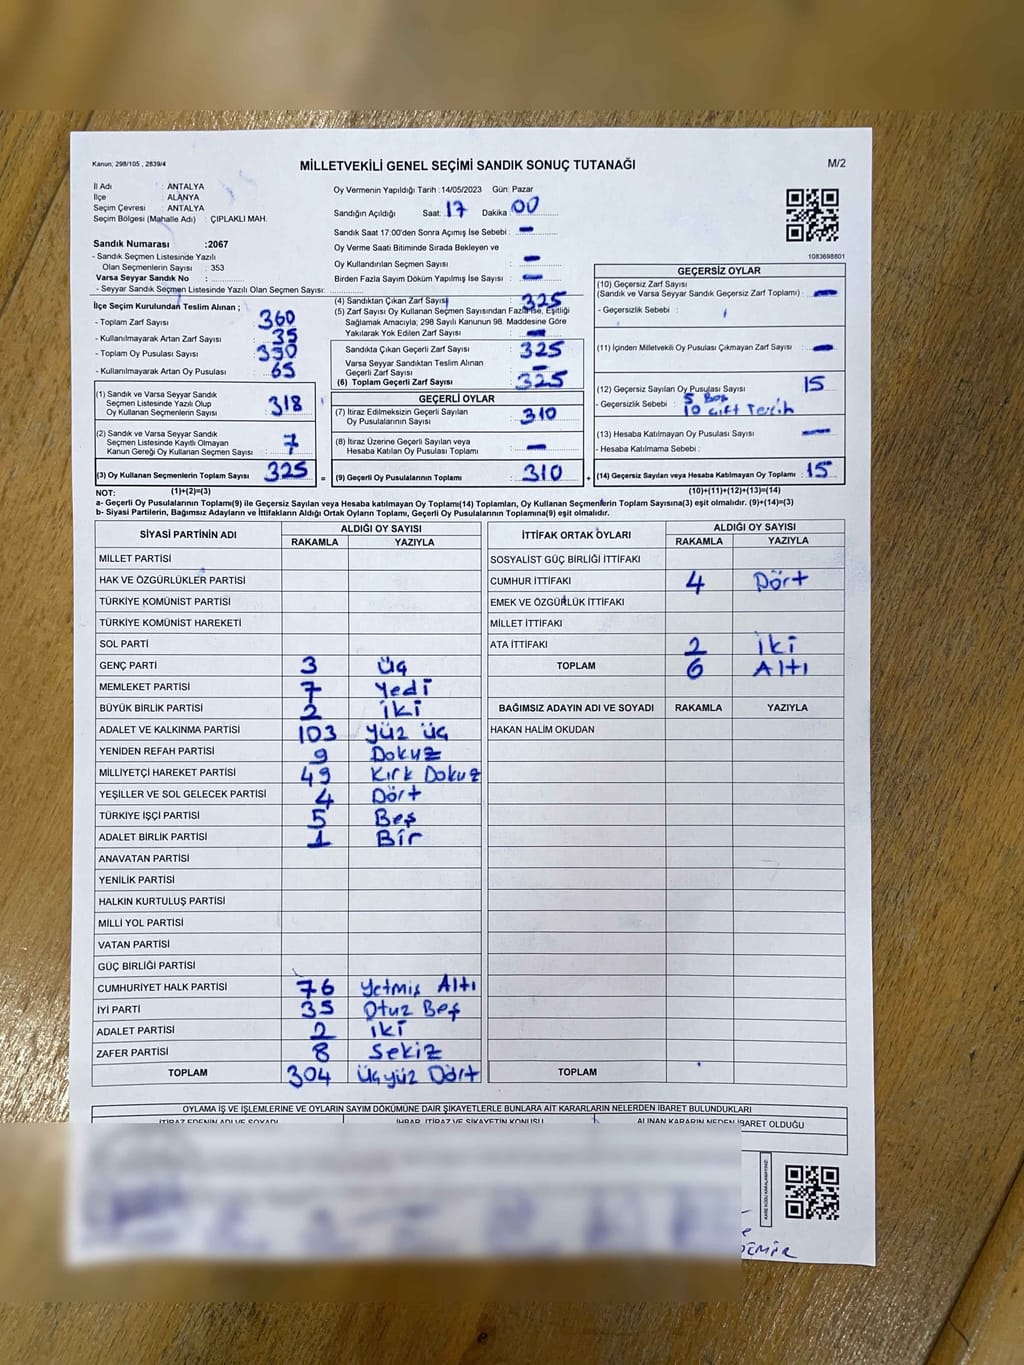 Kanun; 298/105 , 2839/4
MİLLETVEKİLİ GENEL SEÇİMİ SANDIK SONUÇ TUTANAĞI
M/2
İl Adı : ANTALYA
İlçe : ALANYA
Seçim Çevresi : ANTALYA
Seçim Bölgesi (Mahalle Adı) : ÇIPLAKLI MAH.
Sandık Numarası :2067
- Sandık Seçmen Listesinde Yazılı
Olan Seçmenlerin Sayısı : 353
Varsa Seyyar Sandık No :
- Seyyar Sandık Seçmen Listesinde Yazılı Olan Seçmen Sayısı:
Oy Vermenin Yapıldığı Tarih :14/05/2023 Gün: Pazar
Sandığın Açıldığı Saat: 17 Dakika : 00
Sandık Saat 17:00'den Sonra Açımış İse Sebebi : -
Oy Verme Saati Bitiminde Sırada Bekleyen ve
Oy Kullandırılan Seçmen Sayısı : -
Birden Fazla Sayım Döküm Yapılmış İse Sayısı : -
1083698801
İlçe Seçim Kurulundan Teslim Alınan ;
- Toplam Zarf Sayısı : 360
- Kullanılmayarak Artan Zarf Sayısı : 35
- Toplam Oy Pusulası Sayısı : 390
- Kullanılmayarak Artan Oy Pusulası : 65
(1) Sandık ve Varsa Seyyar Sandık
Seçmen Listesinde Yazılı Olup
Oy Kullanan Seçmenlerin Sayısı : 318
(2) Sandık ve Varsa Seyyar Sandık
Seçmen Listesinde Kayıtlı Olmayan
Kanun Gereği Oy Kullanan Seçmen Sayısı : 7
(3) Oy Kullanan Seçmenlerin Toplam Sayısı : 325
(1)+(2)=(3)
(4) Sandıktan Çıkan Zarf Sayısı : 325
(5) Zarf Sayısı Oy Kullanan Seçmen Sayısından Fazla ise, Eşitliği
Sağlamak Amacıyla; 298 Sayılı Kanunun 98. Maddesine Göre
Yakılarak Yok Edilen Zarf Sayısı : -
Sandıkta Çıkan Geçerli Zarf Sayısı : 325
Varsa Seyyar Sandıktan Teslim Alınan
Geçerli Zarf Sayısı : -
(6) Toplam Geçerli Zarf Sayısı : 325
GEÇERLİ OYLAR
(7) İtiraz Edilmeksizin Geçerli Sayılan
Oy Pusulalarının Sayısı : 310
(8) İtiraz Üzerine Geçerli Sayılan veya
Hesaba Katılan Oy Pusulası Toplamı : -
= (9) Geçerli Oy Pusulalarının Toplamı : 310 +
GEÇERSİZ OYLAR
(10) Geçersiz Zarf Sayısı
(Sandık ve Varsa Seyyar Sandık Geçersiz Zarf Toplamı) : -
- Geçersizlik Sebebi :
(11) İçinden Milletvekili Oy Pusulası Çıkmayan Zarf Sayısı : -
(12) Geçersiz Sayılan Oy Pusulası Sayısı : 15
- Geçersizlik Sebebi : 5 Boş
10 Çift Tercih
(13) Hesaba Katılmayan Oy Pusulası Sayısı : -
- Hesaba Katılmama Sebebi :
(14) Geçersiz Sayılan veya Hesaba Katılmayan Oy Toplamı : 15
(10)+(11)+(12)+(13)=(14)
NOT:
a- Geçerli Oy Pusulalarının Toplamı(9) ile Geçersiz Sayılan veya Hesaba katılmayan Oy Toplamı(14) Toplamları, Oy Kullanan Seçmenlerin Toplam Sayısına(3) eşit olmalıdır. (9)+(14)=(3)
b- Siyasi Partilerin, Bağımsız Adayların ve İttifakların Aldığı Ortak Oyların Toplamı, Geçerli Oy Pusulalarının Toplamına(9) eşit olmalıdır.
SİYASİ PARTİNİN ADI ALDIĞI OY SAYISI
RAKAMLA YAZIYLA
MİLLET PARTİSİ
HAK VE ÖZGÜRLÜKLER PARTİSİ
TÜRKİYE KOMÜNİST PARTİSİ
TÜRKİYE KOMÜNİST HAREKETİ
SOL PARTİ
GENÇ PARTİ 3 Üç
MEMLEKET PARTİSİ 7 Yedi
BÜYÜK BİRLİK PARTİSİ 2 İki
ADALET VE KALKINMA PARTİSİ 103 Yüz üç
YENİDEN REFAH PARTİSİ 9 Dokuz
MİLLİYETÇİ HAREKET PARTİSİ 49 Kırk Dokuz
YEŞİLLER VE SOL GELECEK PARTİSİ 4 Dört
TÜRKİYE İŞÇİ PARTİSİ 5 Beş
ADALET BİRLİK PARTİSİ 1 Bir
ANAVATAN PARTİSİ
YENİLİK PARTİSİ
HALKIN KURTULUŞ PARTİSİ
MİLLİ YOL PARTİSİ
VATAN PARTİSİ
GÜÇ BİRLİĞİ PARTİSİ
CUMHURİYET HALK PARTİSİ 76 Yetmiş Altı
İYİ PARTİ 35 Otuz Beş
ADALET PARTİSİ 2 İki
ZAFER PARTİSİ 8 Sekiz
TOPLAM 304 Üçyüz Dört
İTTİFAK ORTAK OYLARI ALDIĞI OY SAYISI
RAKAMLA YAZIYLA
SOSYALİST GÜÇ BİRLİĞİ İTTİFAKI
CUMHUR İTTİFAKI 4 Dört
EMEK VE ÖZGÜRLÜK İTTİFAKI
MİLLET İTTİFAKI
ATA İTTİFAKI 2 İki
TOPLAM 6 Altı
BAĞIMSIZ ADAYIN ADI VE SOYADI RAKAMLA YAZIYLA
HAKAN HALİM OKUDAN
TOPLAM
OYLAMA İŞ VE İŞLEMLERİNE VE OYLARIN SAYIM DÖKÜMÜNE DAİR ŞİKAYETLERLE BUNLARA AİT KARARLARIN NELERDEN İBARET BULUNDUKLARI
İTİRAZ EDENİN ADI VE SOYADI İHBAR, İTİRAZ VE ŞİKAYETİN KONUSU ALINAN KARARIN NEDEN İBARET OLDUĞU